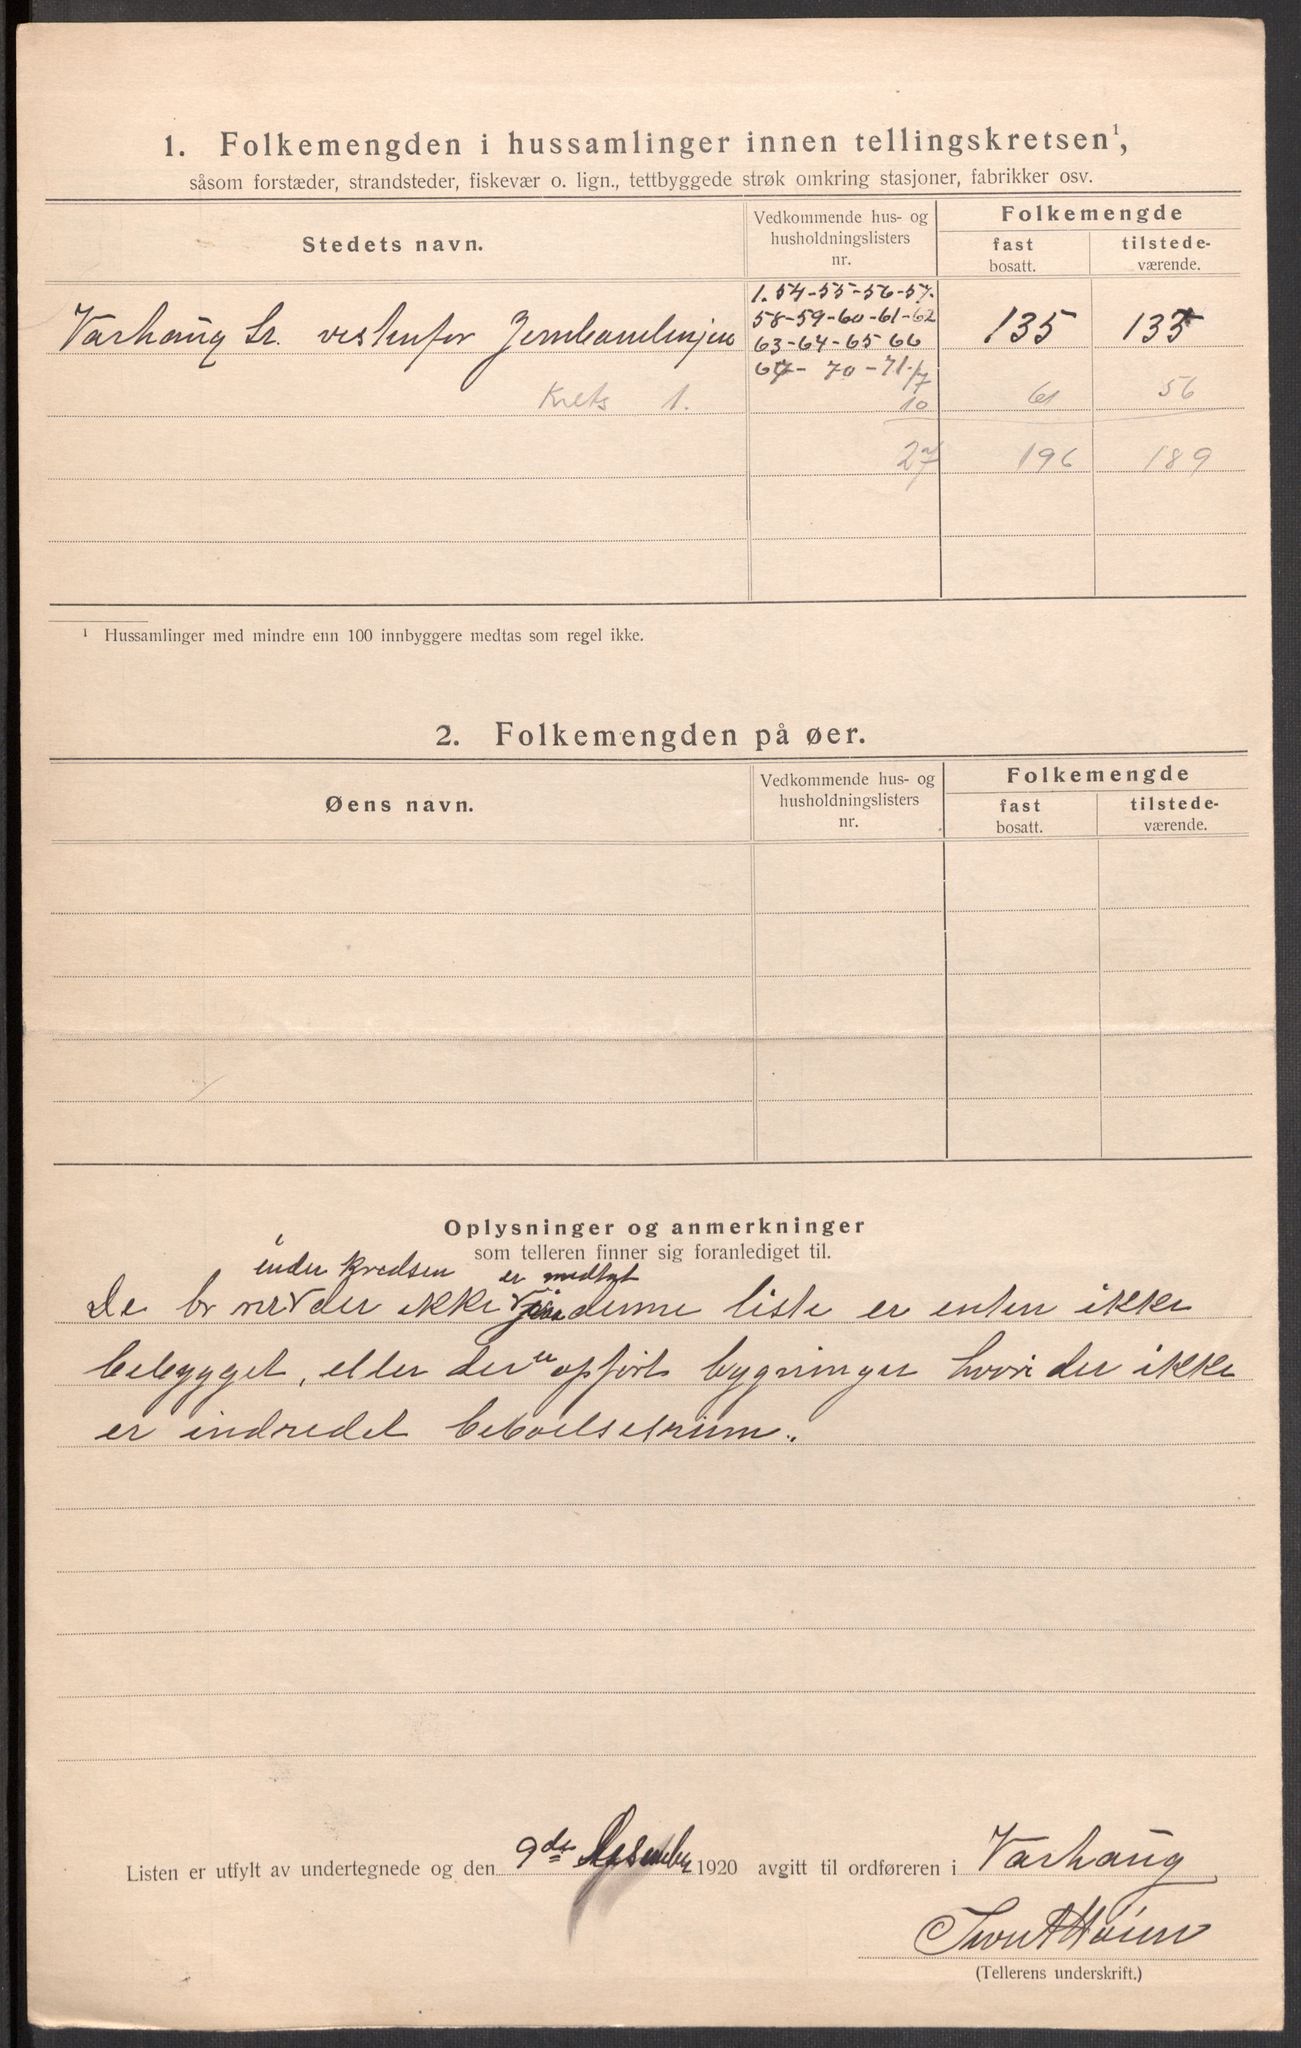 1. Folkemengden i hussamlinger innen tellingskretsen¹,
såsom forstæder, strandsteder, fiskevær o. lign., tettbyggede strøk omkring stasjoner, fabrikker osv.
Stedets navn. Vedkommende hus- og husholdningslisters nr. Folkemengde
fast bosatt. tilstede-værende.
1. 54-55-56-57.
Varhaug st. vestenfor Jernbanelinjen 58-59-60-61-62 135 133
63-64-65 66
67- 70-71. 17
Krets 1. 10 61 56
27 196 189
¹ Hussamlinger med mindre enn 100 innbyggere medtas som regel ikke.
2. Folkemengden på øer.
Øens navn. Vedkommende hus- og husholdningslisters nr. Folkemengde
fast bosatt. tilstede-værende.
Oplysninger og anmerkninger
som telleren finner sig foranlediget til.
under kredsen er medtat
De br nr der ikke i denne liste er enten ikke
bebygget, eller der er opført bygninger hvori der ikke
er indredet beboelsesrum.
Listen er utfylt av undertegnede og den 9de Desember 1920 avgitt til ordføreren i Varhaug
Høien
(Tellerens underskrift.)